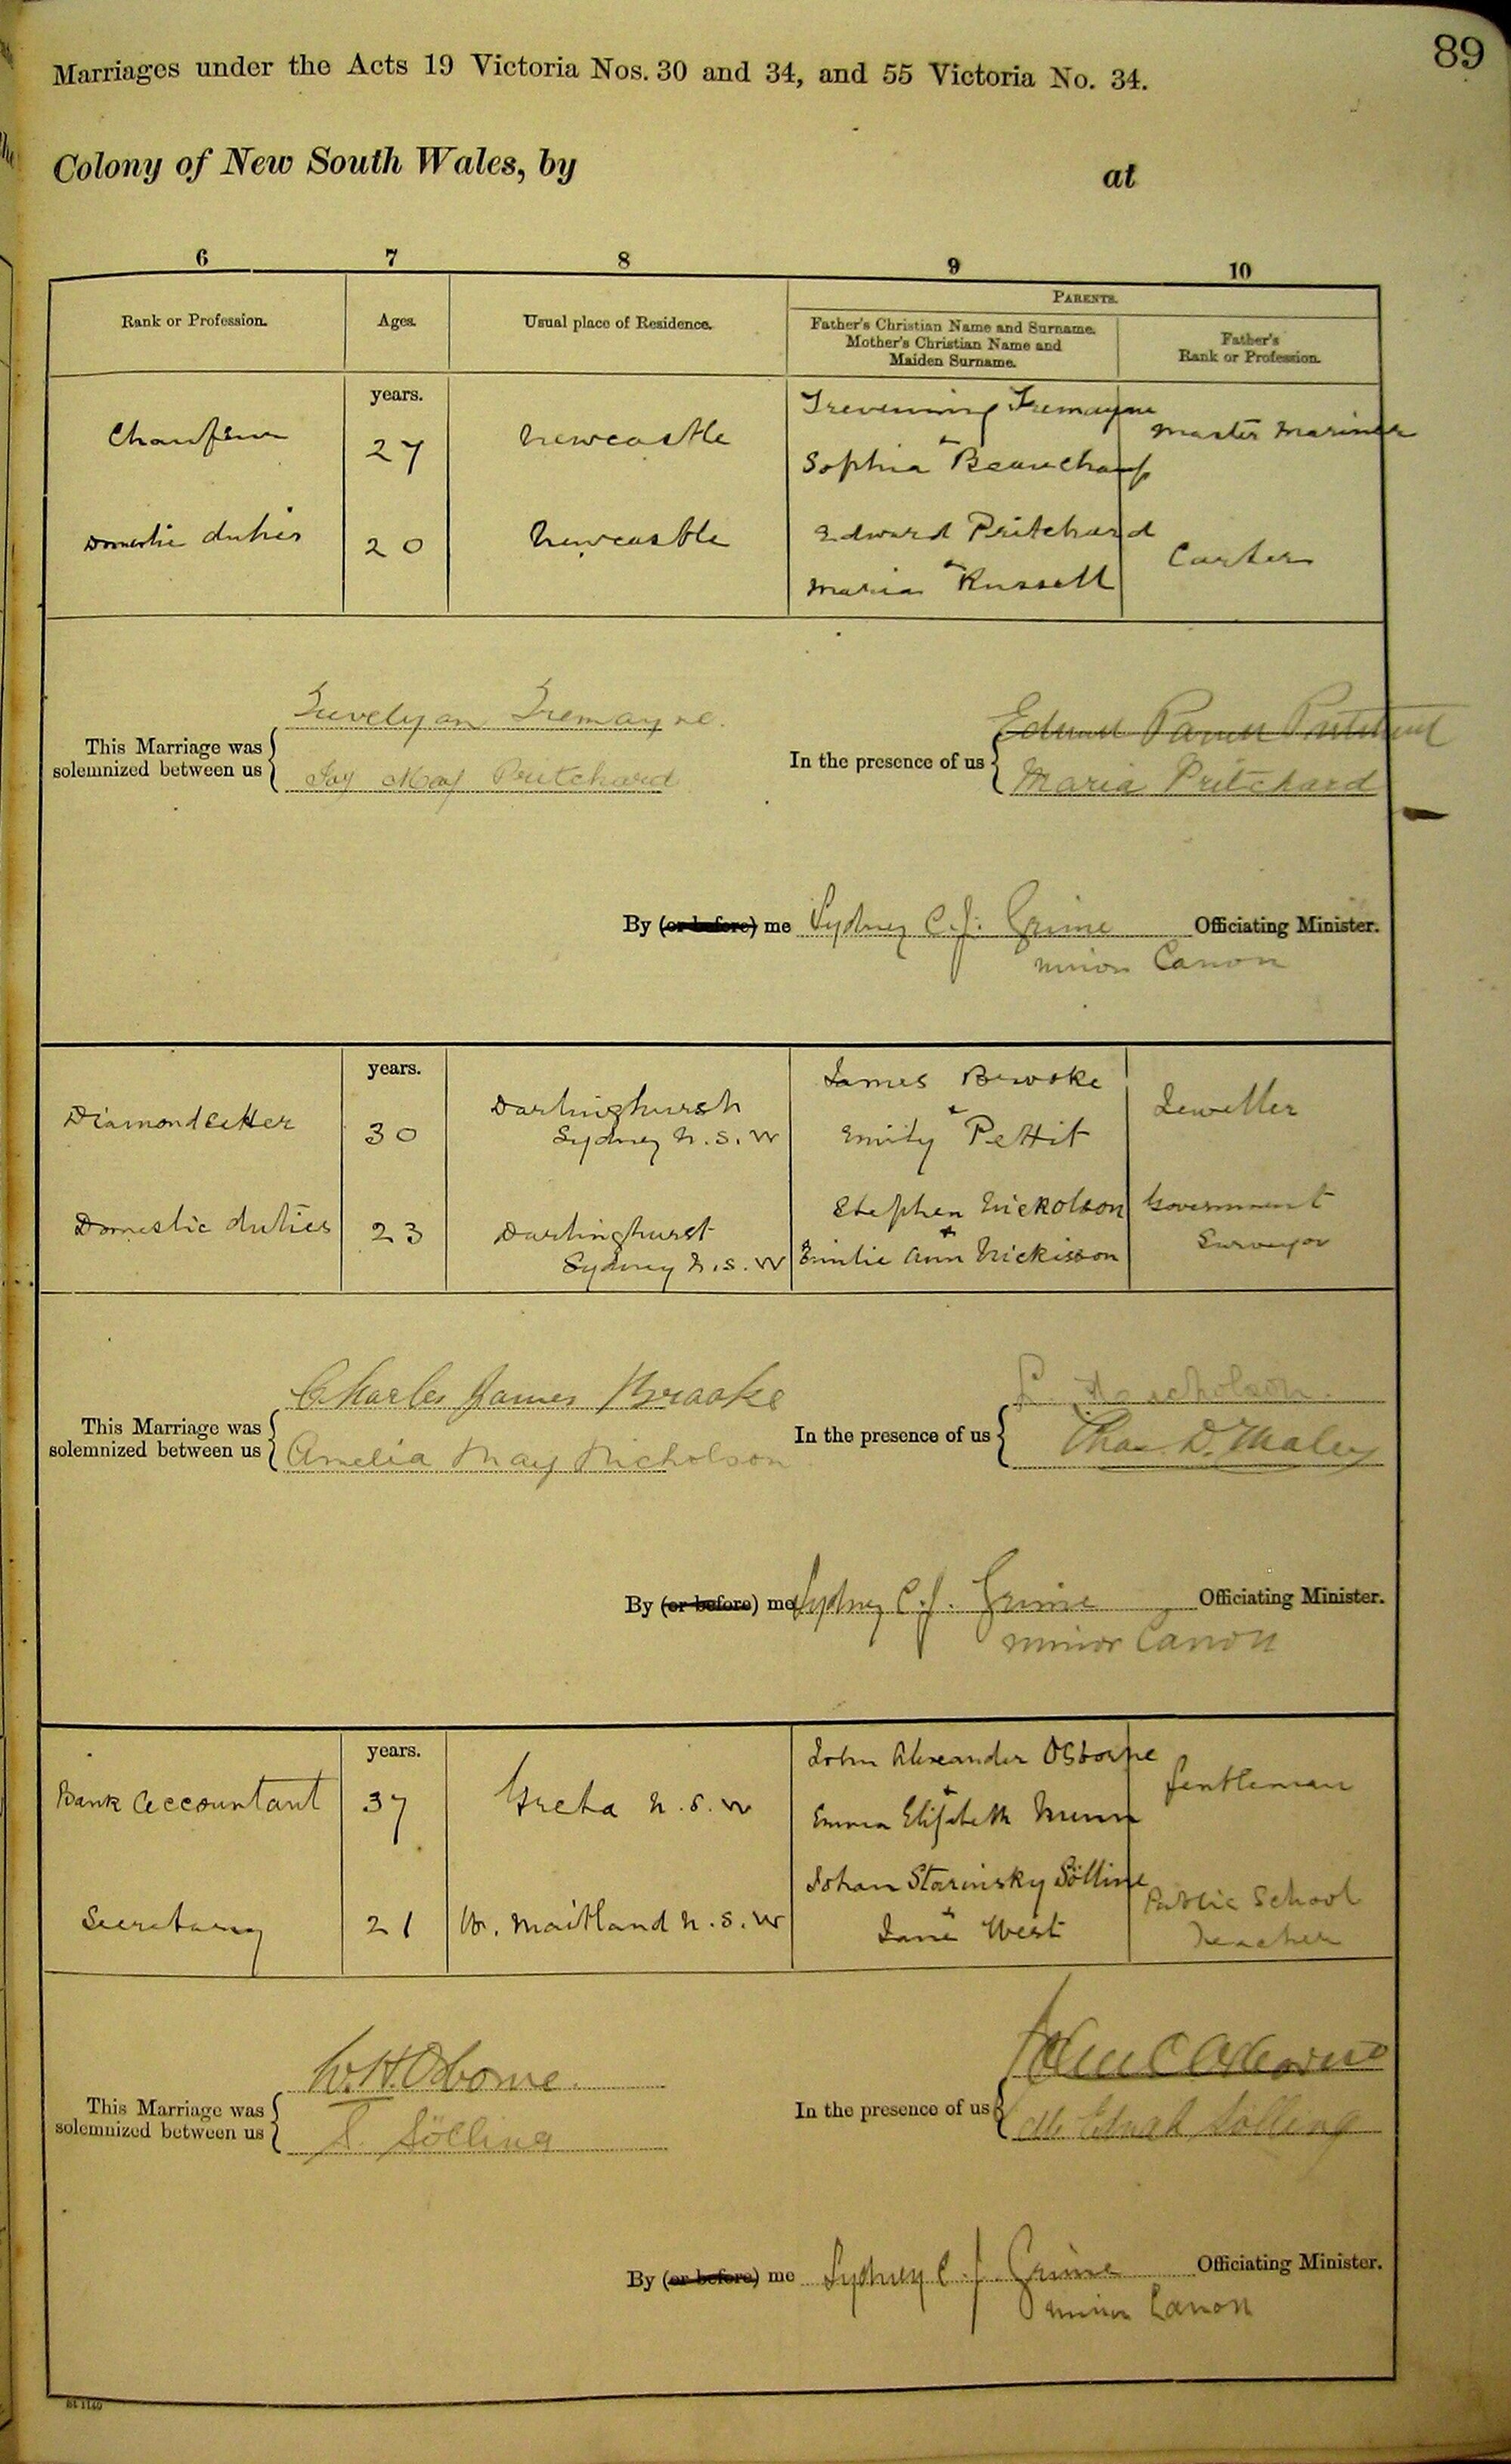 89
Marriages under the Acts 19 Victoria Nos. 30 and 34, and 55 Victoria No. 34.
Colony of New South Wales, by at
6 7 8 9 10
Rank or Profession. Ages. Usual place of Residence. PARENTS.
Father's Christian Name and Surname.
Mother's Christian Name and
Maiden Surname.
Father's
Rank or Profession.
years.
Chauffeur 27 Newcastle Tremayne Master Mariner
Sophia Beauchamp
Domestic duties 20 Newcastle Edward Pritchard Carter
Maria Russell
This Marriage was
solemnized between us
Trevelyan Tremayne.
May Pritchard
In the presence of us
Pritchard
Maria Pritchard
By (or before) me Sydney C. J. Grime Officiating Minister.
minor Canon
years.
Diamond setter 30 Darlinghurst
Sydney N.S.W
James Brooke
&
Emily Pettit
Jeweller
Domestic duties 23 Darlinghurst
Sydney N.S.W
Stephen Nickolson
&
Emilie Ann Nickisson
Government
Surveyor
This Marriage was
solemnized between us
Charles James Brooke
Amelia May Nicholson
In the presence of us
Chas. D. Maley
By (or before) me Sydney C. J. Grime Officiating Minister.
minor Canon
years.
Bank Accountant 37 Greta N.S.W
John Alexander Osborne
&
Emma Elizabeth Munn
Gentleman
Secretary 21 W. Maitland N.S.W
Johan Starinsky Sölling
&
Jane West
Public School
Teacher
This Marriage was
solemnized between us
W. H. Osborne.
S. Sölling
In the presence of us
Sölling
By (or before) me Sydney C. J. Grime Officiating Minister.
minor Canon